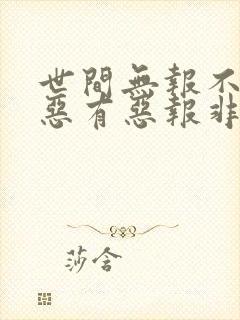 世間無報不
惡有惡報非
莎含